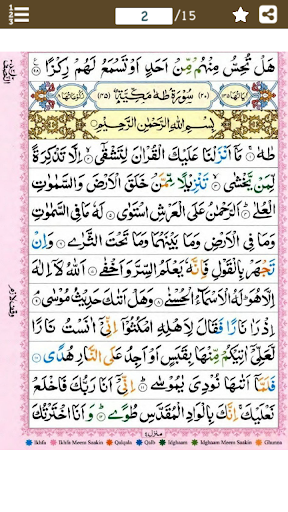 2 /15
هَلْ تُحِسُّ مِنْهُمْ مِّنْ اَحَدٍ اَوْ تَسْمَعُ لَهُمْ رِكْزًا
سُوْرَةُ طٰهٰ مَكِّيَّةٌ
بِسْمِ اللّٰهِ الرَّحْمٰنِ الرَّحِيْمِ
طٰهٰ ۚ مَآ اَنْزَلْنَا عَلَيْكَ الْقُرْاٰنَ لِتَشْقٰٓى ۙ اِلَّا تَذْكِرَةً
لِّمَنْ يَّخْشٰى ۙ تَنْزِيْلًا مِّمَّنْ خَلَقَ الْاَرْضَ وَالسَّمٰوٰتِ
الْعُلٰى ؕ اَلرَّحْمٰنُ عَلَى الْعَرْشِ اسْتَوٰى لَهٗ مَا فِى السَّمٰوٰتِ
وَمَا فِى الْاَرْضِ وَمَا بَيْنَهُمَا وَمَا تَحْتَ الثَّرٰى وَاِنْ
تَجْهَرْ بِالْقَوْلِ فَاِنَّهٗ يَعْلَمُ السِّرَّ وَاَخْفٰى اَللّٰهُ لَآ اِلٰهَ
اِلَّا هُوَ ؕ لَهُ الْاَسْمَآءُ الْحُسْنٰى وَهَلْ اَتٰىكَ حَدِيْثُ مُوْسٰى ۘ
اِذْ رَاٰ نَارًا فَقَالَ لِاَهْلِهِ امْكُثُوْٓا اِنِّىْٓ اٰنَسْتُ نَارًا
لَّعَلِّىْٓ اٰتِيْكُمْ مِّنْهَا بِقَبَسٍ اَوْ اَجِدُ عَلَى النَّارِ هُدًى
فَلَمَّآ اَتٰىهَا نُوْدِىَ يٰمُوْسٰى ؕ اِنِّىْٓ اَنَا رَبُّكَ فَاخْلَعْ
نَعْلَيْكَ ۚ اِنَّكَ بِالْوَادِ الْمُقَدَّسِ طُوًى ؕ وَاَنَا اخْتَرْتُكَ
Ikhfa Ikhfa Meem Saakin Qalqala Qalb Idghaam Idghaam Meem Saakin Ghunna